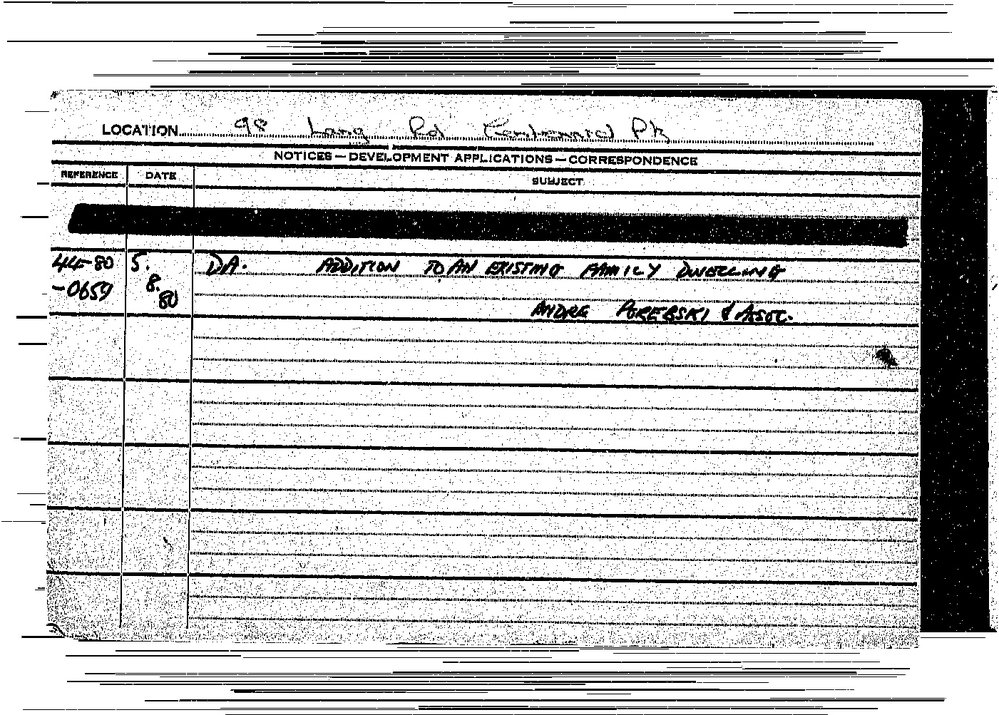 LOCATION 98 Lang Rd Centennial Pk
NOTICES — DEVELOPMENT APPLICATIONS — CORRESPONDENCE
REFERENCE DATE SUBJECT
44-80 5. DA. ADDITION TO AN EXISTING FAMILY DWELLING
-0659 8.
80
ANDRE POREBSKI & ASSOC.